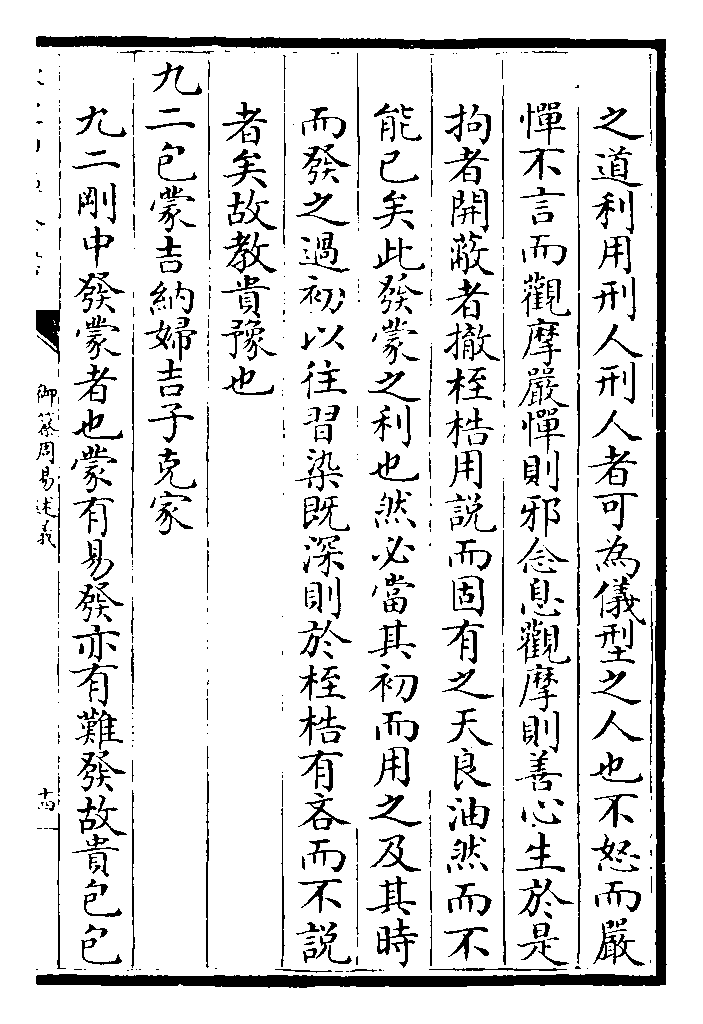 之道利用刑人刑人者可為儀型之人也不怒而嚴
憚不言而觀摩嚴憚則邪念息觀摩則善心生於是
拘者開蔽者撤桎梏用説而固有之天良油然而不
能已矣此發蒙之利也然必當其初而用之及其時
而發之過初以往習染既深則於桎梏有吝而不説
者矣故教貴豫也
九二包蒙吉納婦吉子克家
九二剛中發蒙者也蒙有易發亦有難發故貴包包
御纂周易述義
十四